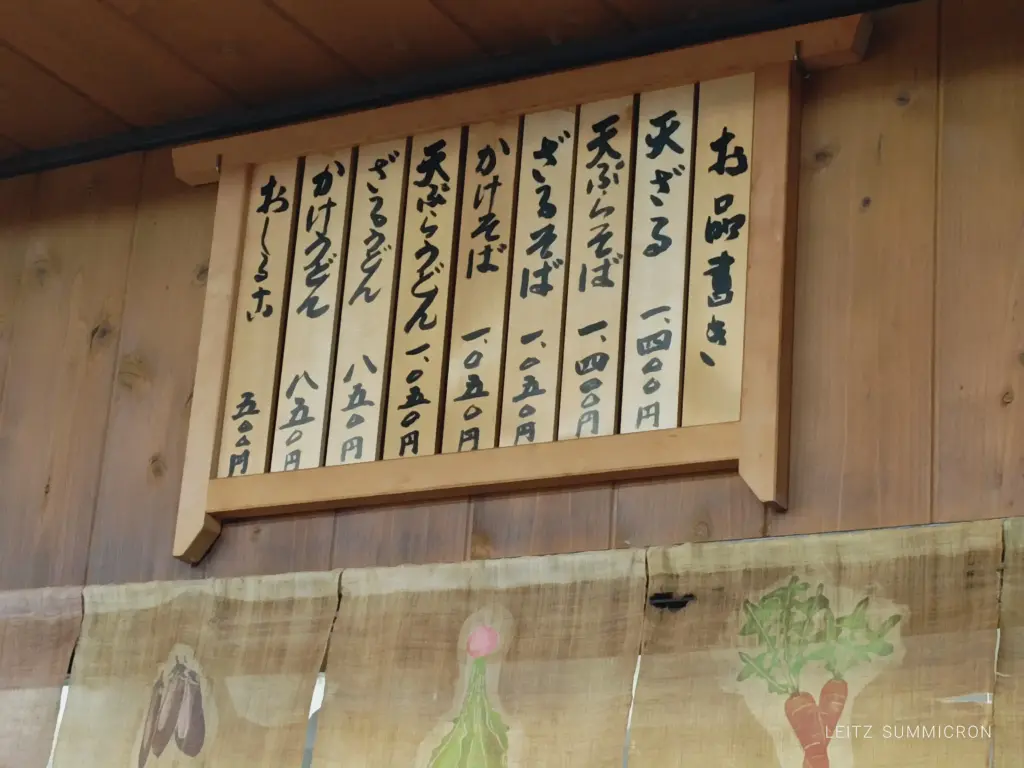 お品書き
天ざる 一、四〇〇円
天ぷらそば 一、四〇〇円
ざるそば 一、〇五〇円
かけそば 一、〇五〇円
天ぷらうどん 一、〇五〇円
ざるうどん 八五〇円
かけうどん 八五〇円
おしるこ 五〇〇円
LEITZ SUMMICRON